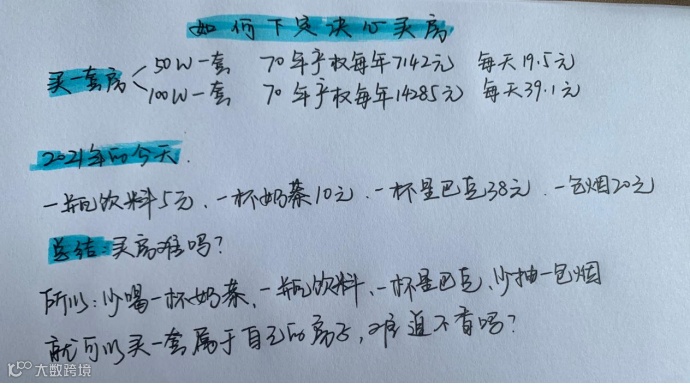 如何下定决心买房
买一套房
50W一套 70年产权每年7142元 每天19.5元
100W一套 70年产权每年14285元 每天39.1元
2021年的今天
一瓶饮料5元、一杯奶茶10元、一杯星巴克38元、一包烟20元
总结:买房难吗?
所以:少喝一杯奶茶、一瓶饮料、一杯星巴克、少抽一包烟
就可以买一套属于自己的房子,难道不香吗?
大数跨境